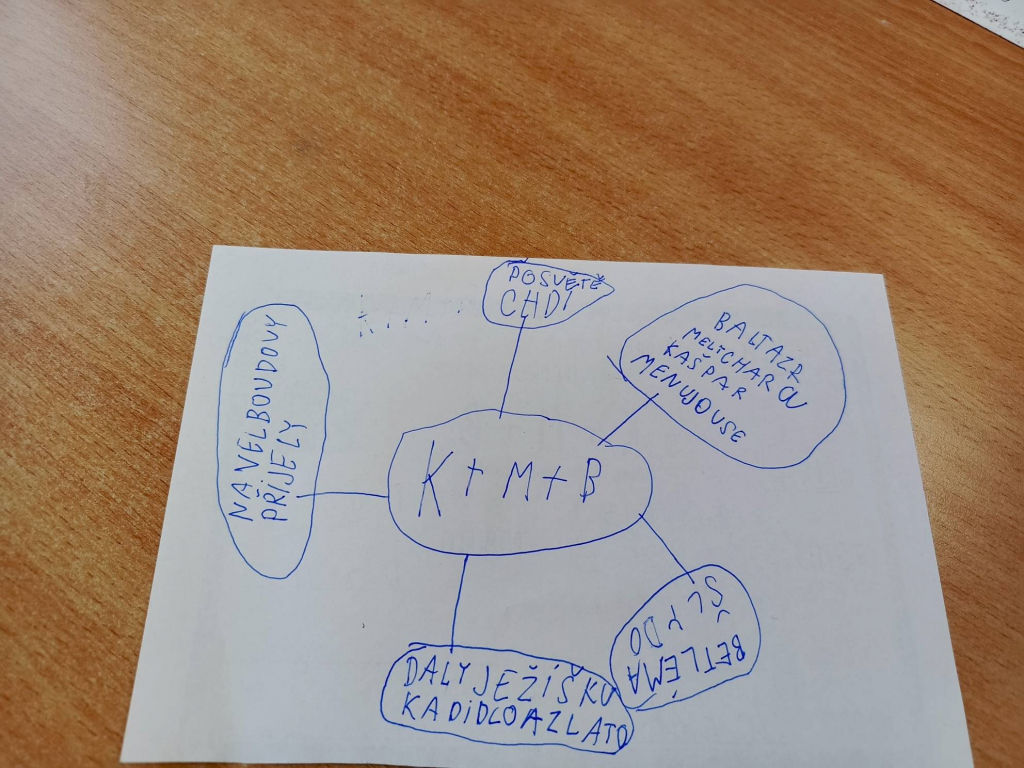 POSVĚTĚ
CHDÍ
BALTAZR
MELICHAR OU
KAŠPAR
MENUJOUSE
NA VELBOUDOVY
PŘIJELY
K + M + B
ŠLY DO
BETLÉMA
DALY JEŽÍŠKU
KADIDLO A ZLATO